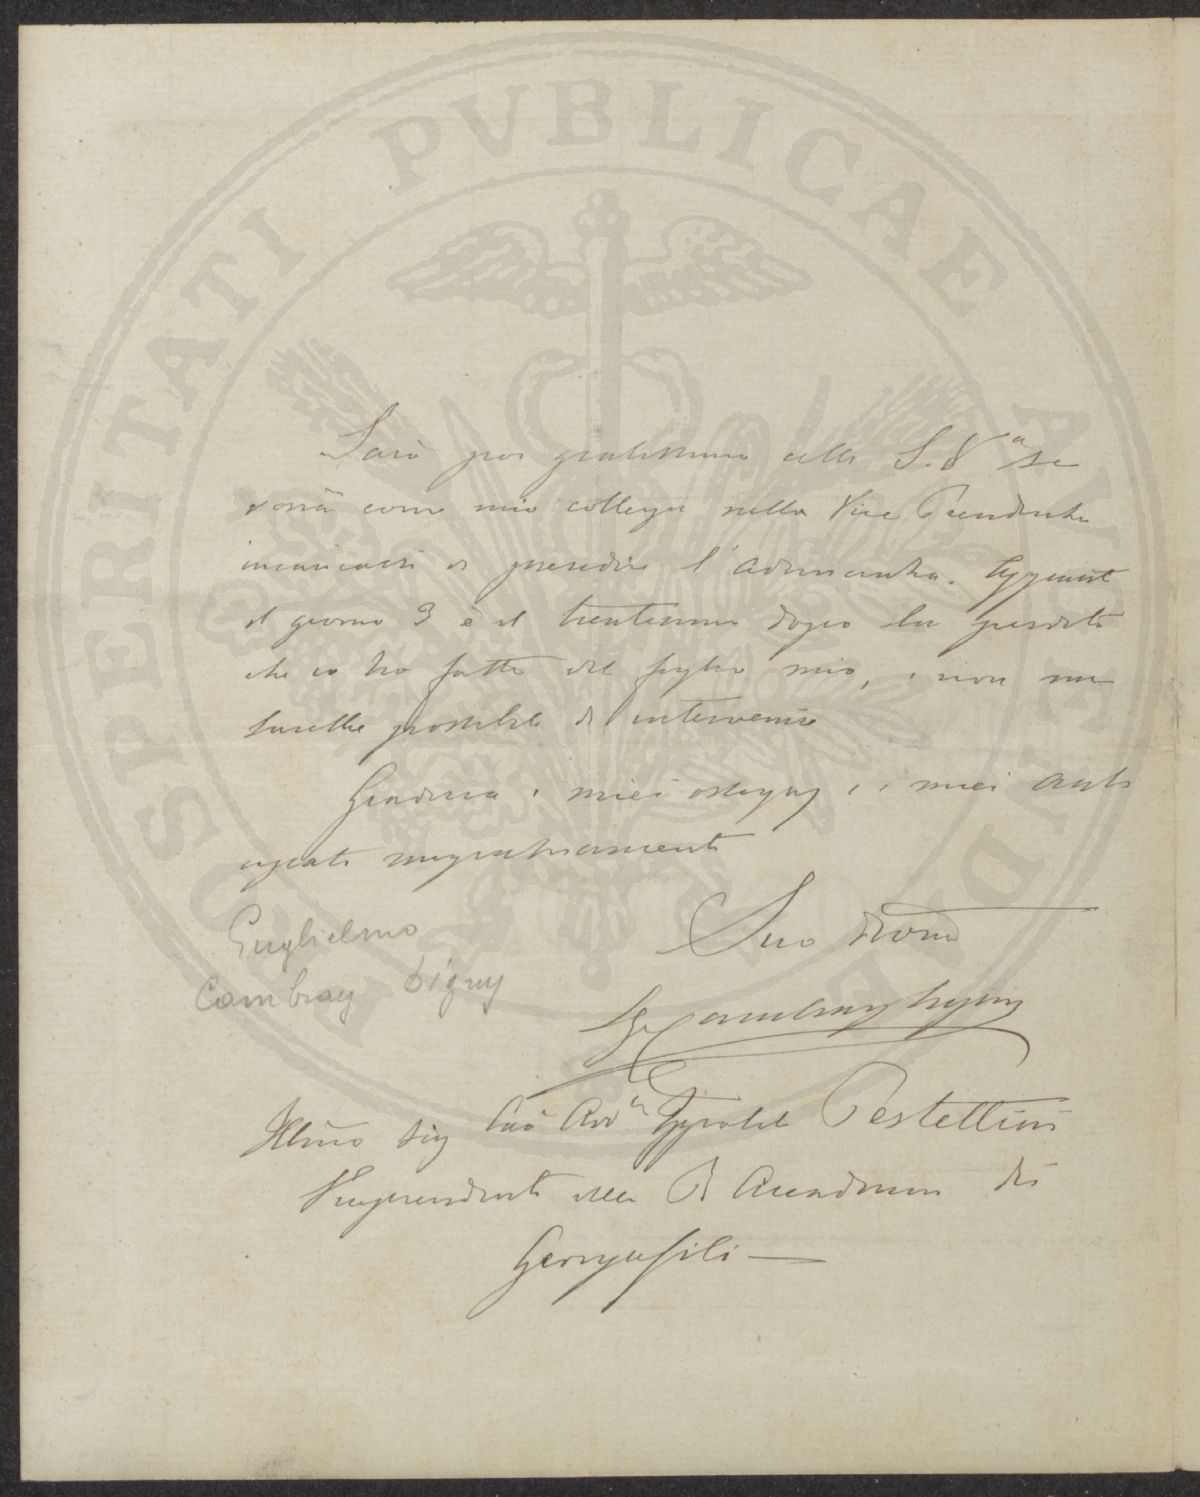 PROSPERITATI PVBLICAE AVGENDAE
Sarò poi gratissimo alla S. V.ª se
vorrà come mio collega nella Vice Presidenza
incaricarsi di presedere l'adunanza.
il giorno 3 è il trentesimo dopo la perdita
che io ho fatto del figlio mio, e non mi
sarebbe possibile di intervenire
Gradisca i miei ossequj e i miei anti
cipati ringraziamenti
Suo Devmo
Guglielmo
Cambray Digny
G Cambray Digny
Illmo Sig Cav Avv Ippolito Pestellini
Vicepresidente della R Accademia dei
Georgofili